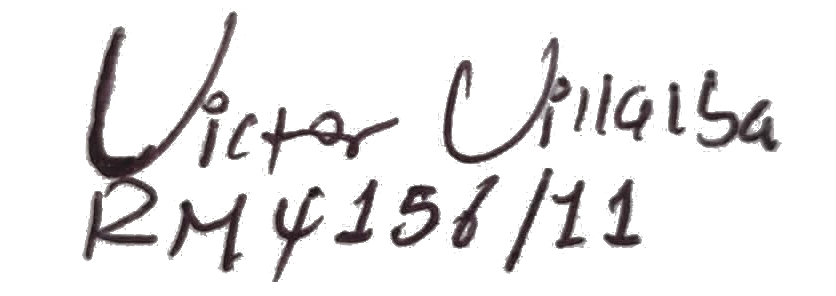 Victor Villalba
RM 4156/11